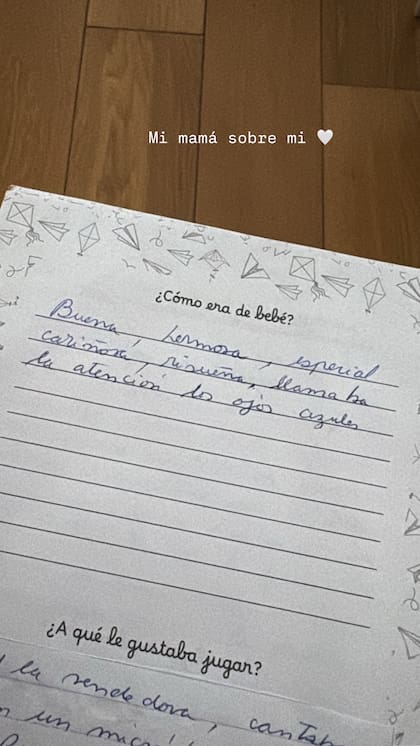 Mi mamá sobre mi 🤍
¿Cómo era de bebé?
Buena, hermosa, especial
cariñosa, risueña, llamaba
la atención los ojos azules
¿A qué le gustaba jugar?
la vendedora, cantaba
un